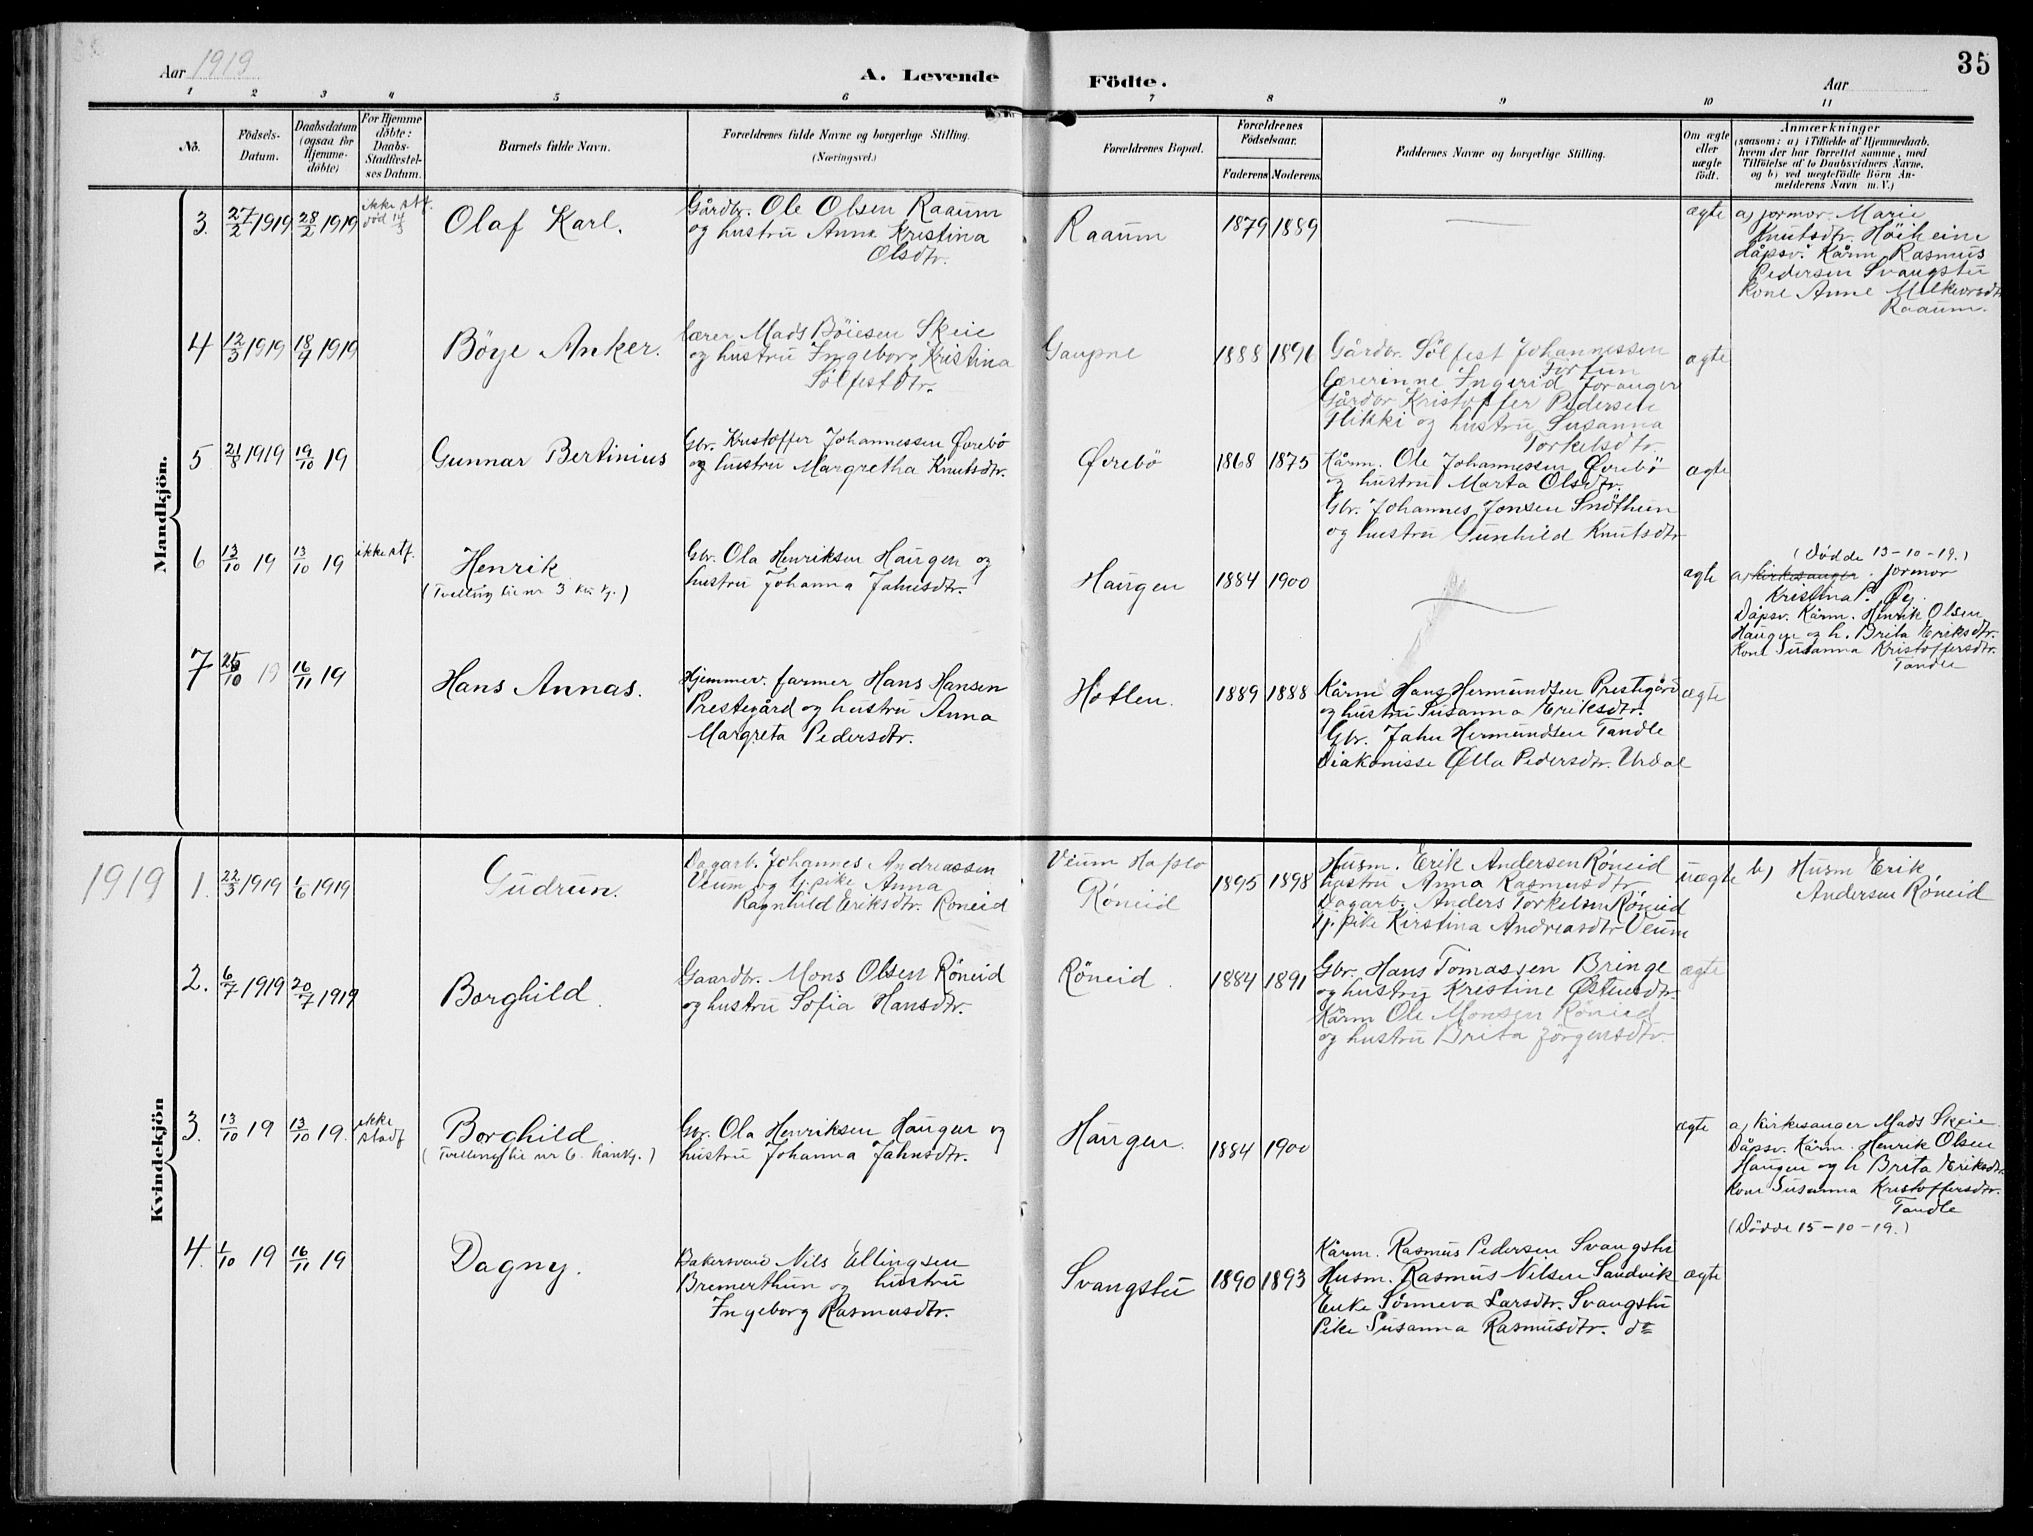 35
Aar 1919
A. Levende Födte.
Aar
1 2 3 4 5 6 7 8 9 10 11
No.
Födsels-Datum.
Daabsdatum (ogsaa for Hjemme-döbte)
For Hjemme döbte: Daabs-Stadfæstel-ses Datum.
Barnets fulde Navn.
Forældrenes fulde Navne og borgerlige Stilling.
(Næringsvei.)
Forældrenes Bopæl.
Forældrenes Födselsaar.
Faderens Moderens
Faddernes Navne og borgerlige Stilling.
Om ægte eller uægte födt.
Anmærkninger
(saasom: a) i Tilfælde af Hjemmedaab, hvem der har forrettet samme, med Tilföielse af to Daabsvidners Navne, og b) ved uægtefödte Börn An-melderens Navn m. V.)
Mandkjön.
3. 27/2 1919 28/2 1919 ikke stf. död 14/3
Olaf Karl.
Gårdbr. Ole Olsen Raaum
og hustru Anna Kristina
Olsdtr.
Raaum 1879 1889 ægte
a) jormor. Marie
Knutsdtr. Höiheine
dåpsv. Kårm. Rasmus
Pedersen Svangstu
Kone Anne Melkeorsdtr
Raaum.
4 12/3 1919 18/4 1919
Böye Anker.
Lærer Mads Böiesen Skeie
og hustru Ingeborg Kristina
Sölfestdtr.
Gaupne 1888 1896
Gårdbr. Sölfest Johannessen
Fortun
Lærerinne Ingerid Joranger
Gårdbr Kristoffer Pedersen
Hikki og hustru Susanna
Torkelsdtr.
ægte
5 21/8 1919 19/10 19
Gunnar Bertinius
Gbr. Kristoffer Johannessen Øvrebö
og hustru Margretha Knutsdtr.
Øvrebö 1868 1875
Kårm. Ole Johannessen Øvrebö
og hustru Marta Olsdtr.
Gbr. Johannes Jonsen Snöthun
og hustru Gunhild Knutsdtr
ægte
6 13/10 19 13/10 19 ikke stf.
Henrik
(Tvilling til nr 3 kv kj.)
Gbr. Ola Henriksen Haugen og
hustru Johanna Jahnsdtr.
Haugen 1884 1900 ægte
(Dödde 13-10-19.)
a) kirkesanger. jormor
Kristina P. Øy.
Dåpsv. Kårm. Henrik Olsen
Haugen og h. Brita Eriksdtr.
Kone Susanna Kristoffersdtr.
Tandle
7 /10 19 16/11 19
Hans Annas.
Hjemmev. farmer Hans Hansen
Prestegård og hustru Anna
Margreta Pedersdtr.
Hotlen. 1889 1888
Kårm Hans Hermundsen Prestegård
og hustru Susanna Eriksdtr.
Gbr. Jahn Hermundsen Tandle
Diakonisse Ølla Pedersdtr. Urdal
ægte
1919
Kvindekjön
1. 22/3 1919 1/6 1919
Gudrun.
Dagarb. Johannes Andreassen
Veum og tj. pike Anna
Ragnhild Eriksdtr. Röneid
Veum Hafslo
Röneid
1895 1898
Husm. Erik Andersen Röneid
hustru Anna Rasmusdtr
Dagarb. Anders Torkelsen Röneid
tj. pike Kirstina Andreasdtr Veum
uægte
b) Husm Erik
Andersen Röneid
2. 6/7 1919 20/7 1919
Borghild.
Gaardbr. Mons Olsen Röneid
og hustru Sofia Hansdtr.
Röneid. 1884 1891
Gbr. Hans Tomassen Bringe
og hustru Kristine Østensdtr.
Kårm Ole Monsen Röneid
og hustru Brita Jörgensdtr.
ægte
3. 13/10 19 13/10 19. ikke stadf
Borghild
(Tvilling til nr 6. hankj.)
Gbr. Ola Henriksen Haugen og
hustru Johanna Jahnsdtr.
Haugen. 1884 1900 ægte
a) Kirkesanger Mads Skeie
Dåpsv. Kårm. Henrik Olsen
Haugen og h Brita Eriksdtr.
Kone Susanna Kristoffersdtr.
Tandle
(Dödde 15-10-19.)
4. 1/10 19 16/11 19
Dagny.
Bakersvend Nils Ellingsen
Bremerthun og hustru
Ingeborg Rasmusdtr.
Svangstu 1890 1893
Kårm. Rasmus Pedersen Svangstu
Husm. Rasmus Nilsen Sandvik
Enke Sönneva Larsdtr. Svangstu
Pike Susanna Rasmusdtr. do
ægte